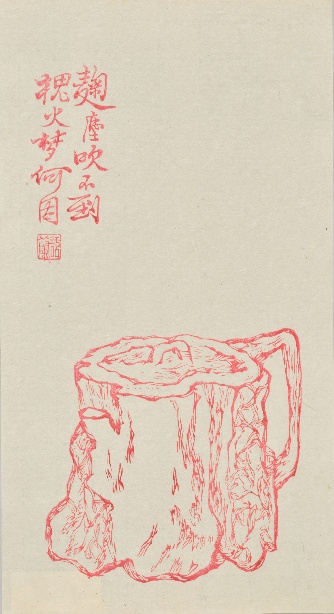 麴塵吹不到
槐火梦何因